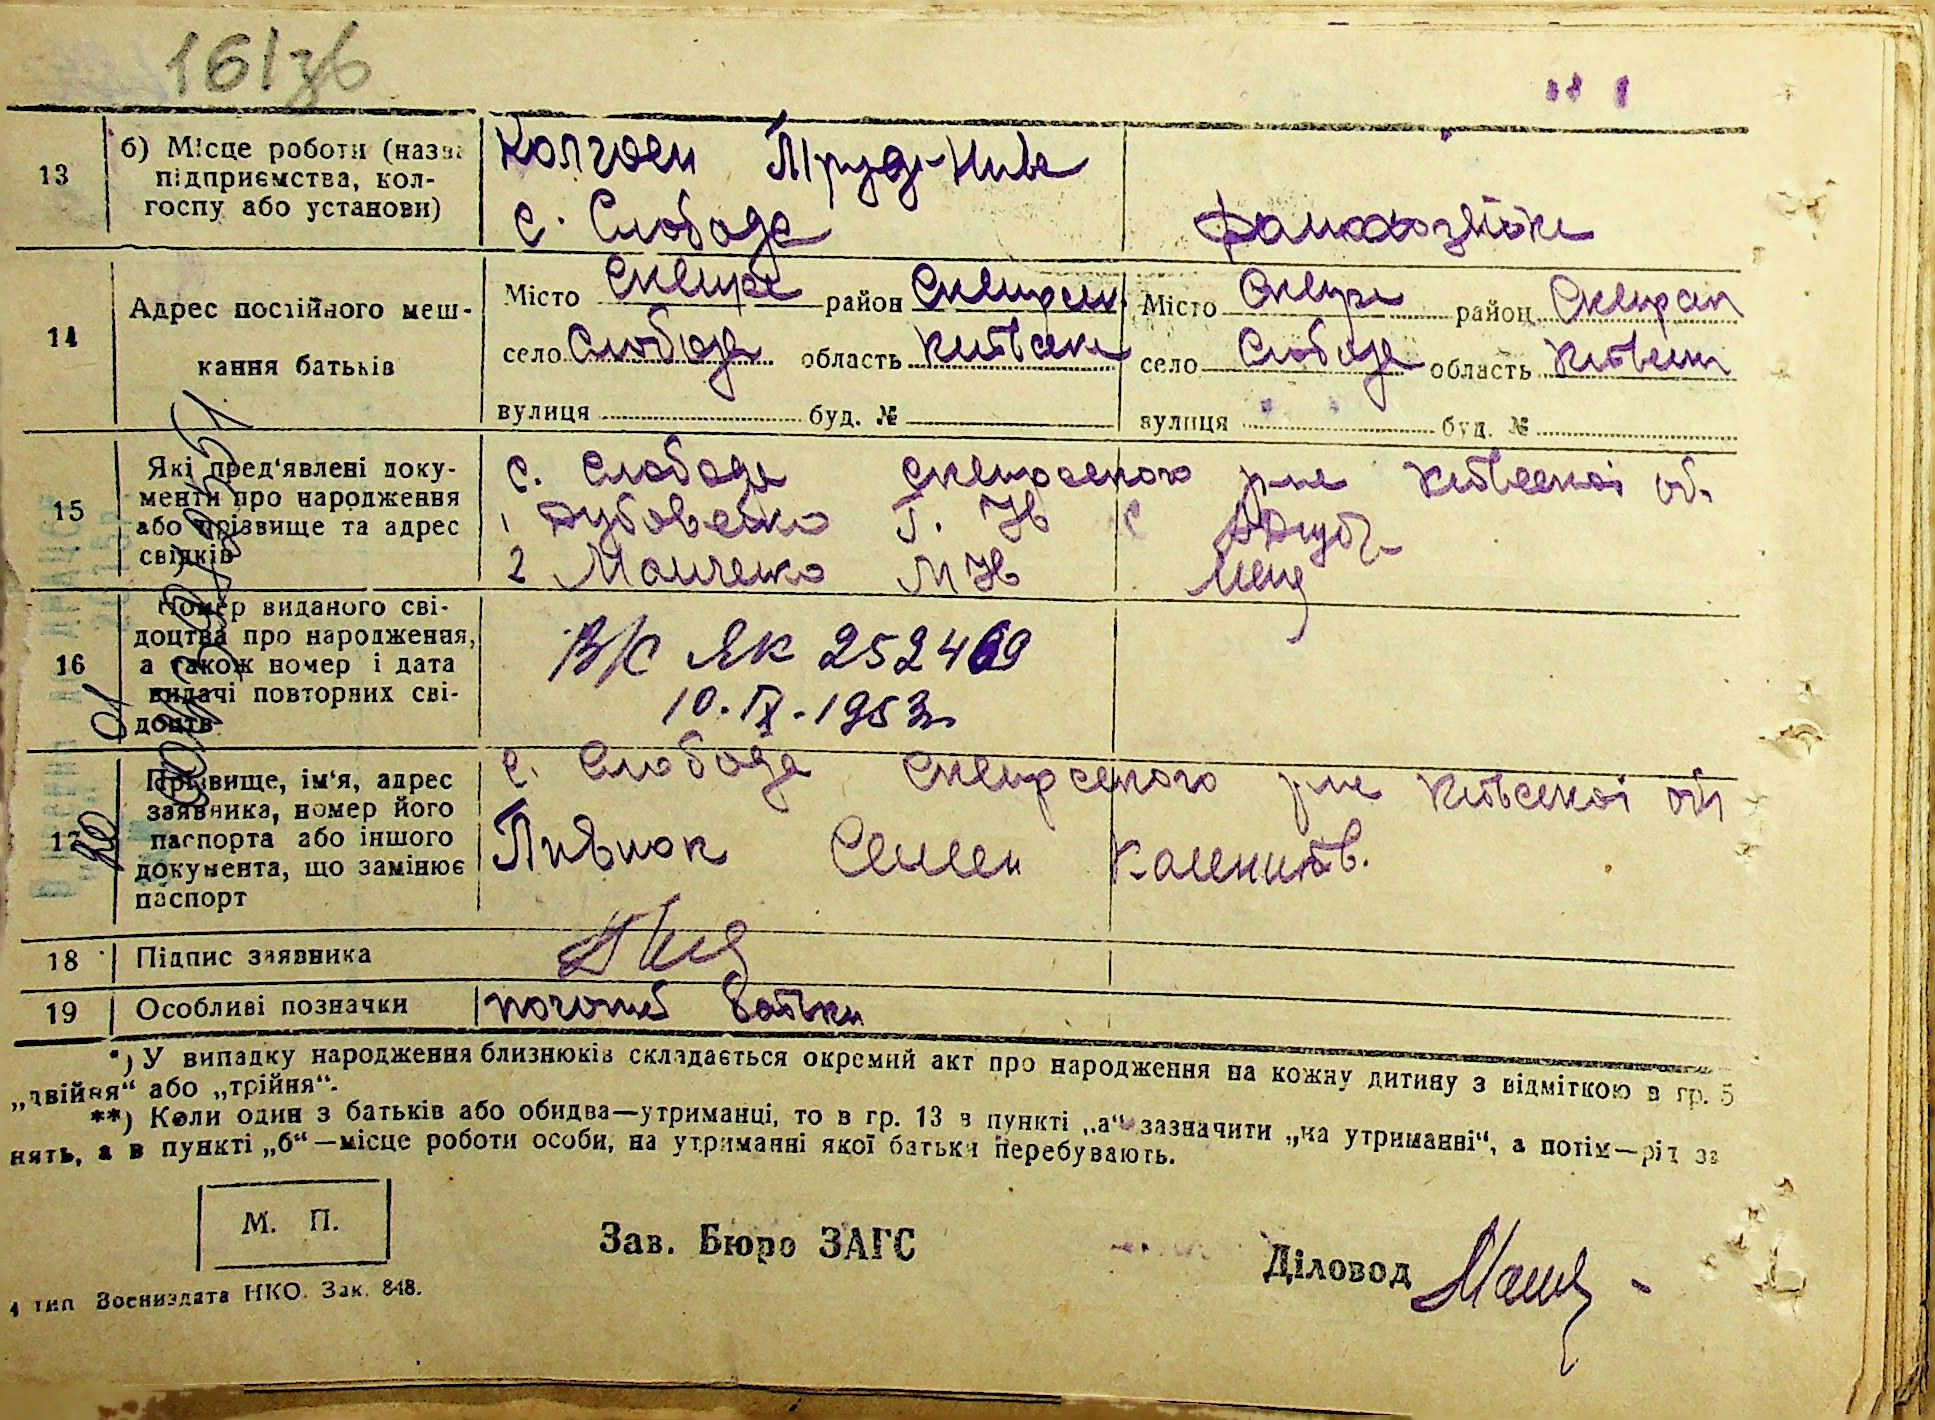 161зв
13
б) Місце роботи (назва
підприємства, кол-
госпу або установи)
Колгосп Труд-Нива
с. Слобода
домохозяйка
14
Адрес постійного меш-
кання батьків
Місто Сквира район Сквирськ
село Слобода область Київська
вулиця буд. №
Місто Сквира район Сквирськ
село Слобода область Київськ
вулиця буд. №
15
Які пред'явлені доку-
менти про народження
або прізвище та адрес
свідків
с. Слобода Сквирського р-на Київської об.
1 Дубовенко Г. Н
2 Манченко М Н
16
Номер виданого сві-
доцтва про народження,
а також номер і дата
видачі повторних сві-
доцтв
В/С ЯК 252469
10.IX.1953
17
Прізвище, ім'я, адрес
заявника, номер його
паспорта або іншого
документа, що замінює
паспорт
с. Слобода Сквирського р-на Київської обл
Пивнюк Семен Каленитв.
18
Підпис заявника
19
Особливі позначки
*) У випадку народження близнюків складається окремий акт про народження на кожну дитину з відміткою в гр. 5
„двійня“ або „трійня“.
**) Коли один з батьків або обидва—утриманці, то в гр. 13 в пункті „а“ зазначити „на утриманні“, а потім—рід за
нять, а в пункті „б“—місце роботи особи, на утриманні якої батьки перебувають.
М. П.
Зав. Бюро ЗАГС
Діловод
4 тип Воениздата НКО. Зак. 848.